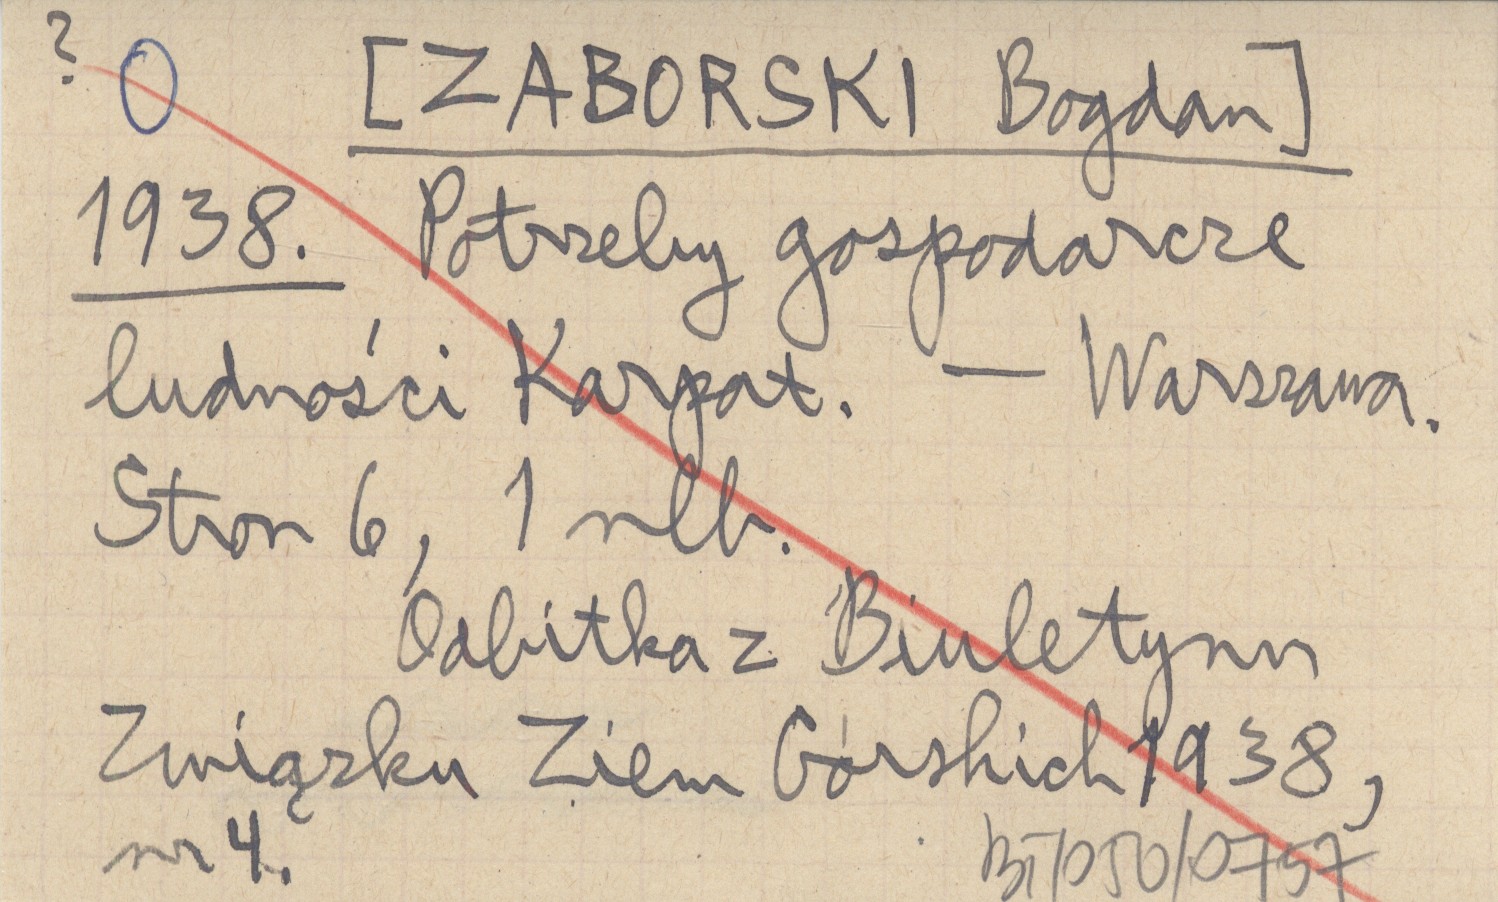 ? O [ZABORSKI Bogdan]
1938. Potrzeby gospodarcze
ludności Karpat. — Warszawa.
Stron 6, 1 nlb.
Odbitka z Biuletynu
Związku Ziem Górskich 1938,
nr 4.
BT/050/0757